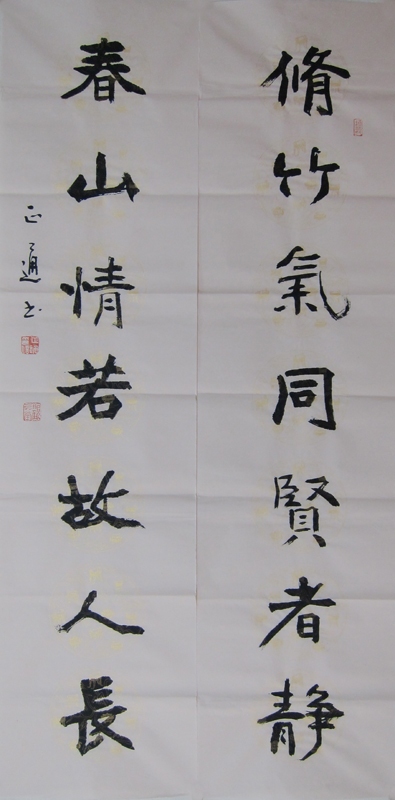 脩竹氣同賢者静
春山情若故人長
正通书